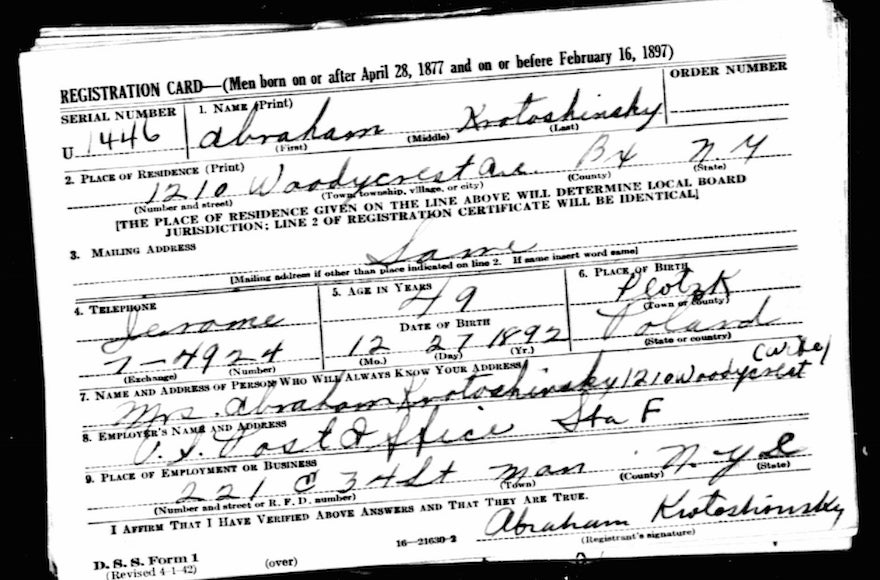 REGISTRATION CARD—(Men born on or after April 28, 1877 and on or before February 16, 1897)
SERIAL NUMBER 1. NAME (Print) ORDER NUMBER
U 1446 Abraham Krotoshinsky
(First) (Middle) (Last)
2. PLACE OF RESIDENCE (Print)
1210 Woodycrest Ave. Bx N.Y
(Number and street) (Town, township, village, or city) (County) (State)
[THE PLACE OF RESIDENCE GIVEN ON THE LINE ABOVE WILL DETERMINE LOCAL BOARD
JURISDICTION; LINE 2 OF REGISTRATION CERTIFICATE WILL BE IDENTICAL]
3. MAILING ADDRESS
Same
[Mailing address if other than place indicated on line 2. If same insert word same]
4. TELEPHONE 5. AGE IN YEARS 6. PLACE OF BIRTH
Jerome 49 Plotzk
(Town or county)
DATE OF BIRTH Poland
7-4924 12 27 1892 (State or country)
(Exchange) (Number) (Mo.) (Day) (Yr.)
7. NAME AND ADDRESS OF PERSON WHO WILL ALWAYS KNOW YOUR ADDRESS
Mrs. Abraham Krotoshinsky 1210 Woodycrest (wife)
8. EMPLOYER'S NAME AND ADDRESS
Post Office Sta F
9. PLACE OF EMPLOYMENT OR BUSINESS
221 E 34 St Man N.Y
(Number and street or R. F. D. number) (Town) (County) (State)
I AFFIRM THAT I HAVE VERIFIED ABOVE ANSWERS AND THAT THEY ARE TRUE.
Abraham Krotoshinsky
D. S. S. Form 1 16—21630-2 (Registrant's signature)
(Revised 4-1-42) (over)